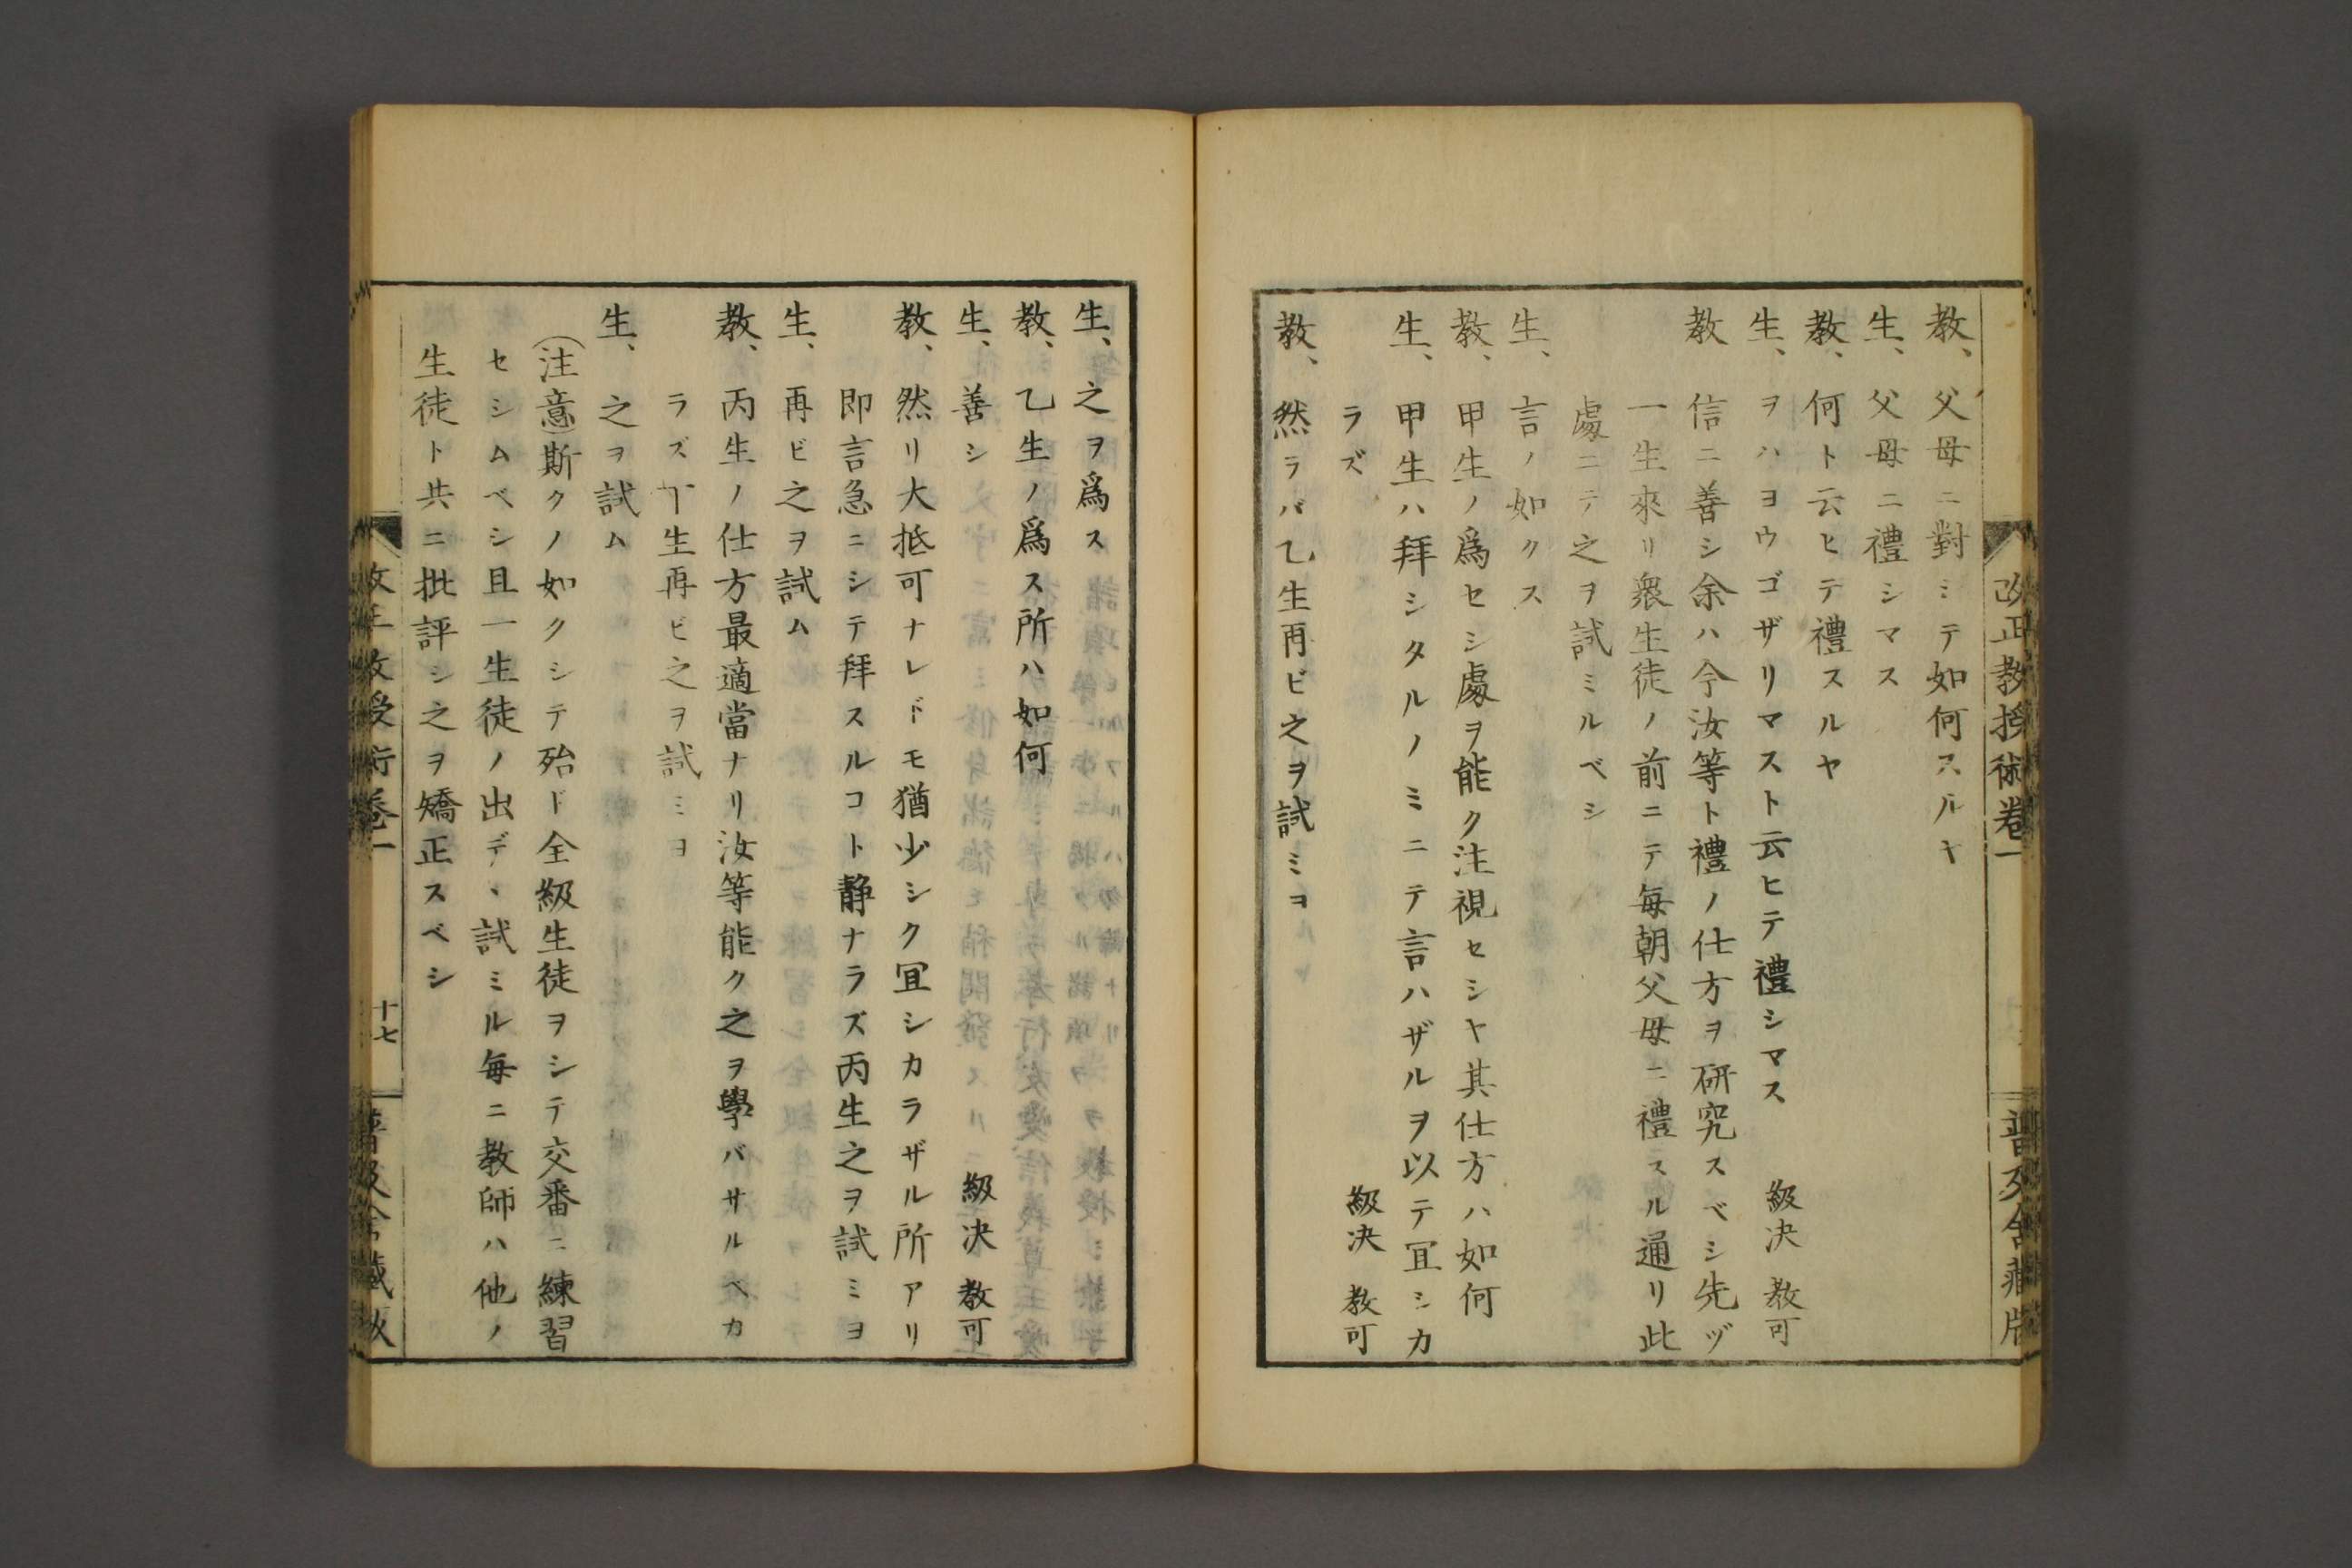 改正教授術卷一
普及舍藏版
教、父母ニ對ミテ如何スルヤ
生、父母ニ禮シマス
教、何ト云ヒテ禮スルヤ
生、ヲハヨウゴザリマスト云ヒテ禮シマス 級决 教可
教 信ニ善シ余ハ今汝等ト禮ノ仕方ヲ研究スベシ先ヅ
一生來リ衆生徒ノ前ニテ毎朝父母ニ禮スル通リ此
處ニテ之ヲ試ミルベシ
生、言ノ如クス
教、甲生ノ爲セシ處ヲ能ク注視セシヤ其仕方ハ如何
生、甲生ハ拜シタルノミニテ言ハザルヲ以テ冝シカ
ラズ 級决 教可
教、然ラバ乙生再ビ之ヲ試ミヨ
生、之ヲ爲ス
教、乙生ノ爲ス所ハ如何
生、善シ 級决 教可
教、然リ大抵可ナレドモ猶少シク冝シカラザル所アリ
即言急ニシテ拜スルコト靜ナラズ丙生之ヲ試ミヨ
生、再ビ之ヲ試ム
教、丙生ノ仕方最適當ナリ汝等能ク之ヲ學バサルベカ
ラズ丁生再ビ之ヲ試ミヨ
生、之ヲ試ム
(注意)斯クノ如クシテ殆ド全級生徒ヲシテ交番ニ練習
セシムベシ且一生徒ノ出デヽ試ミル毎ニ教師ハ他ノ
生徒ト共ニ批評シ之ヲ矯正スベシ
改正教授術卷一
十七
普及舍藏版